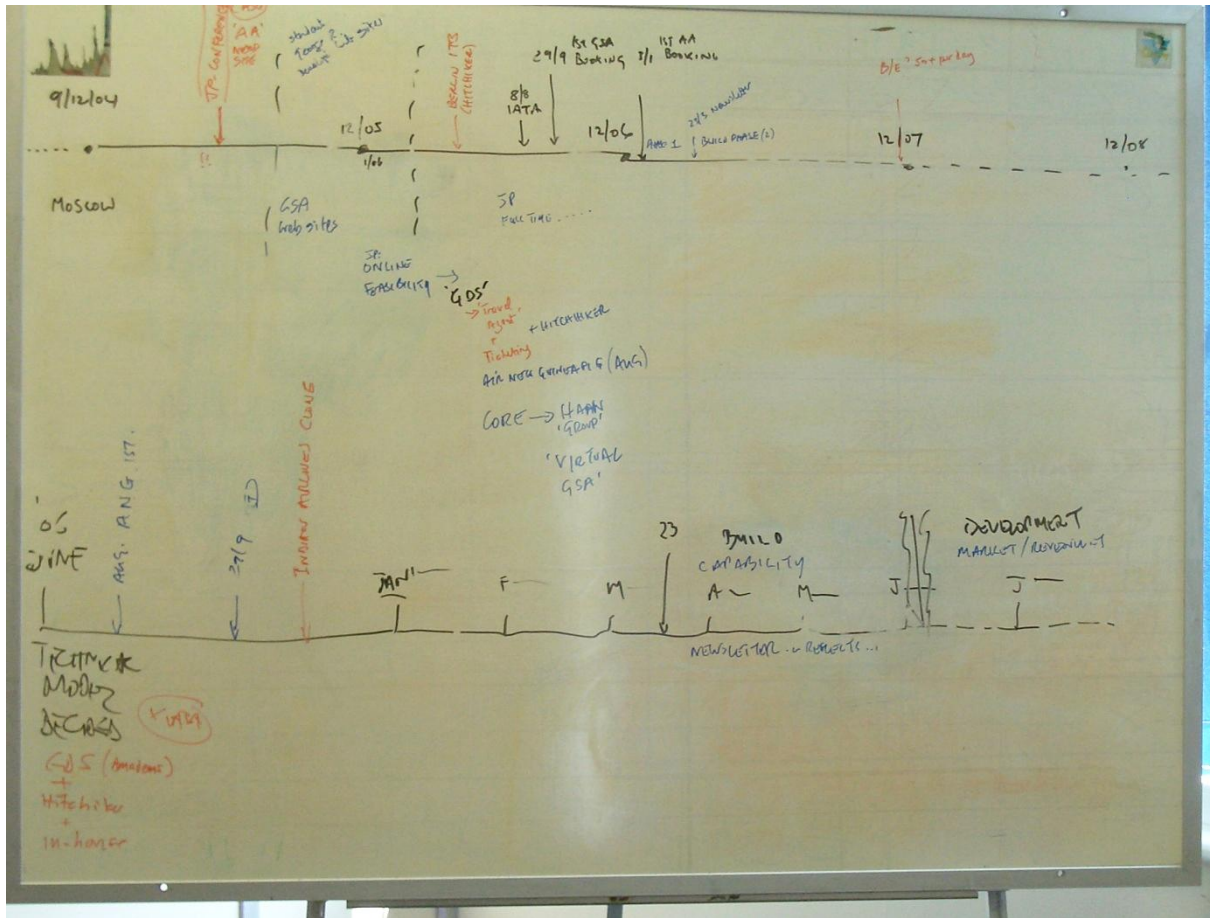 9/12/04
JP. CONFERENCE
'AA'
student
BERLIN ITB
(HITCHIKER)
8/8
IATA
29/9
1ST GSA
BOOKING
1ST AA
BOOKING
12/05
1/06
12/06
BUILD PHASE (2)
12/07
12/08
MOSCOW
GSA
Web sites
JP
FULL TIME .....
JP.
ONLINE
FEASIBILITY →
'GDS'
→ Travel
Agent
+
Ticketing
+ HITCHHIKER
AIR NEW GUINEA (AUG)
CORE → HAHN
'GROUP'
'VIRTUAL
GSA'
'06
JUNE
AUG. ANG. 1ST.
29/9
INDIAN AIRLINES CLONE
JAN'
F
M
23
BUILD
CAPABILITY
A
M
J
DEVELOPMENT
MARKET/REVENUE
J
NEWSLETTER
TECHNICAL
MODEL
DECIDED
GDS (Amadeus)
+
Hitchiker
+
in-house